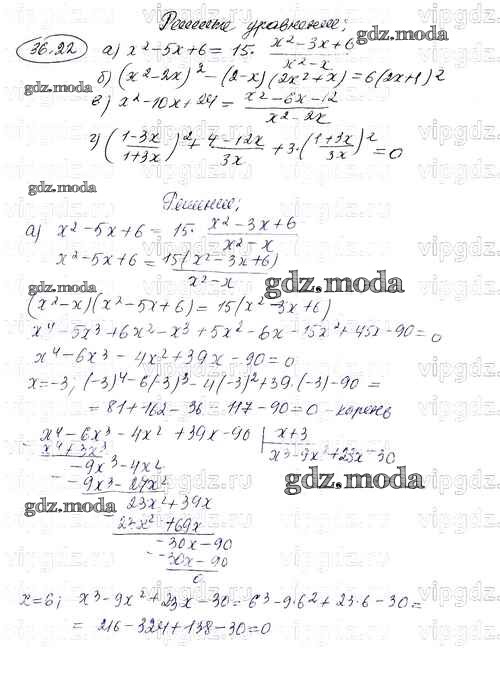 Решите уравнение;
36.22 а) x² - 5x + 6 = 15 · (x² - 3x + 6)/(x² - x)
б) (x² - 2x)² - (2 - x)(2x² + x) = 6(2x + 1)²
в) x² - 10x + 24 = (x² - 6x - 12)/(x² - 2x)
г) ((1 - 3x)/(1 + 3x))² + (4 - 12x)/(3x) + 3 · ((1 + 3x)/(3x))² = 0
gdz.moda
Решение;
а) x² - 5x + 6 = 15 · (x² - 3x + 6)/(x² - x)
x² - 5x + 6 = 15(x² - 3x + 6)/(x² - x)
gdz.moda
gdz.moda
(x² - x)(x² - 5x + 6) = 15(x² - 3x + 6)
x⁴ - 5x³ + 6x² - x³ + 5x² - 6x - 15x² + 45x - 90 = 0
x⁴ - 6x³ - 4x² + 39x - 90 = 0
x = -3; (-3)⁴ - 6(-3)³ - 4(-3)² + 39 · (-3) - 90 =
= 81 + 162 - 36 - 117 - 90 = 0 - корень
x⁴ - 6x³ - 4x² + 39x - 90 | x + 3
x⁴ + 3x³ x³ - 9x² + 23x - 30
-9x³ - 4x²
-9x³ - 27x²
gdz.moda
23x² + 39x
gdz.moda
23x² + 69x
-30x - 90
-30x - 90
0
x = 6; x³ - 9x² + 23x - 30 = 6³ - 9 · 6² + 23 · 6 - 30 =
= 216 - 324 + 138 - 30 = 0